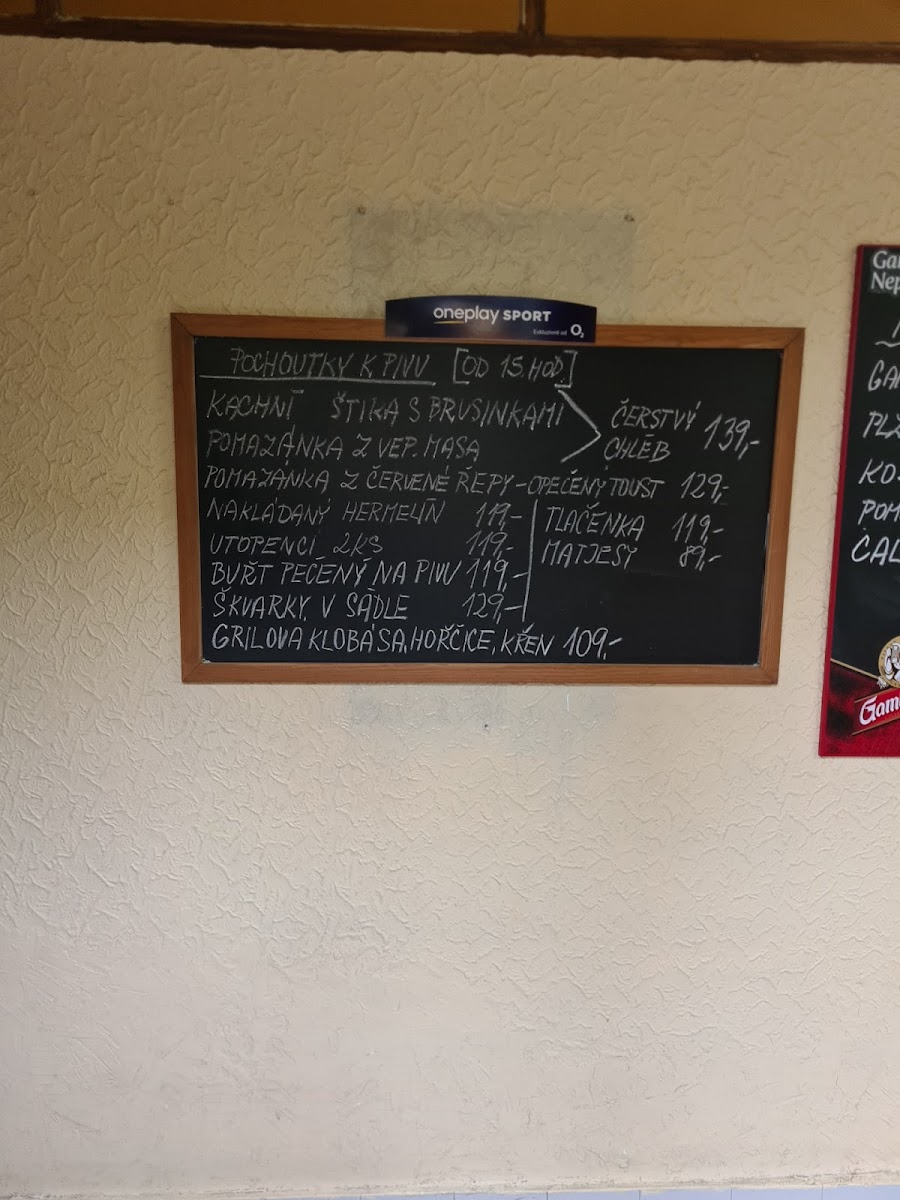 oneplay SPORT
Exkluzivně od O2
POCHOUTKY K PIVU [OD 15.HOD.]
KACHNÍ ŠTIKA S BRUSINKAMI
POMAZÁNKA Z VEP. MASA
ČERSTVÝ CHLÉB 139,-
POMAZÁNKA Z ČERVENÉ ŘEPY - OPEČENÝ TOUST 129,-
NAKLÁDANÝ HERMELÍN 119,-
UTOPENCI 2KS 119,-
BUŘT PEČENÝ NA PIVU 119,-
ŠKVARKY V SÁDLE 129,-
TLAČENKA 119,-
MATJESY 89,-
GRILOVA KLOBÁSA, HOŘČICE, KŘEN 109,-